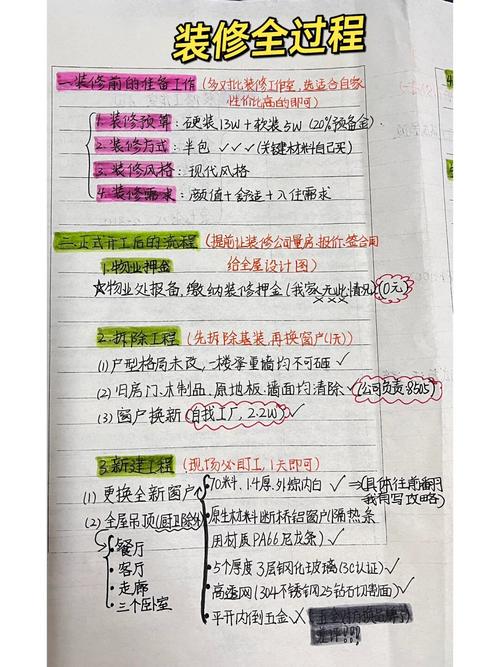 装修全过程
一.装修前的准备工作 (多对比装修工作室,选适合自家
性价比高的即可)
1.装修预算:硬装13W+软装5W(20%预备金)
2.装修方式:半包✓✓✓(关键材料自己买)
3.装修风格:现代风格
4.装修需求:颜值+舒适+入住需求
二.正式开工后的流程 (提前让装修公司量房、报价、签合同
给全屋设计图)
1.物业押金
☆物业处报备、缴纳装修押金(我家无此情况)(0元)
×××
2.拆除工程 (先拆除基装,再换窗户(1天))
(1)户型格局未改,一楼承重墙均不可砸✓
(2)旧房门、木制品、原地板、墙面均清除✓(公司负责:8505)
(3)窗户换新(自找工厂,2.2W)✓
3.新建工程 (现场必盯工,1天即可)
(1)更换全新窗户
70料、1.4厚、外棕内白✓⇒(具体往前翻
我有写攻略)
(2)全屋吊顶(厨卫除外)
原生材料断桥铝窗户(隔热条
用材质PA66尼龙条)
餐厅
客厅
走廊
三个卧室
5个厚度3层钢化玻璃(3C认证)✓
高透网(304不锈钢网25钻石切割面)✓
平开内倒五金✓×